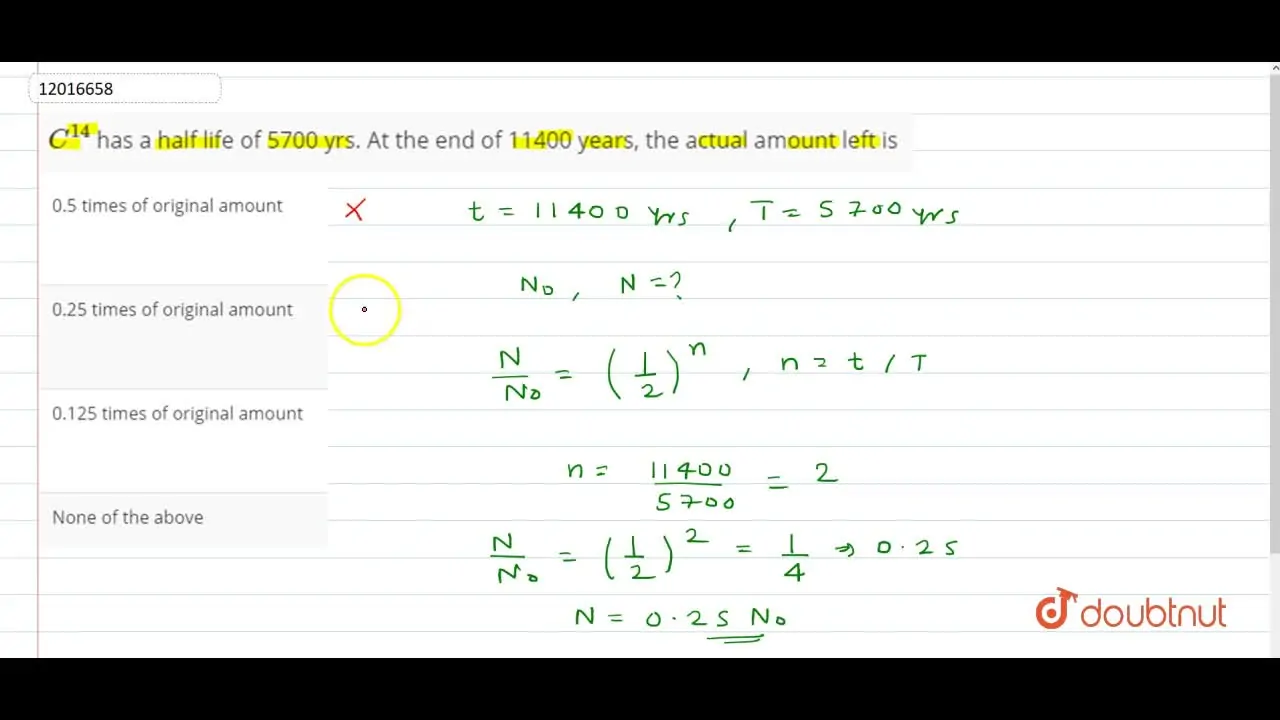 12016658
C^14 has a half life of 5700 yrs. At the end of 11400 years, the actual amount left is
0.5 times of original amount
t = 11400 yrs , T = 5700 yrs
N0 , N = ?
0.25 times of original amount
N/N0 = (1/2)^n , n = t / T
0.125 times of original amount
n = 11400/5700 = 2
None of the above
N/N0 = (1/2)^2 = 1/4 ⇒ 0.25
N = 0.25 N0
doubtnut